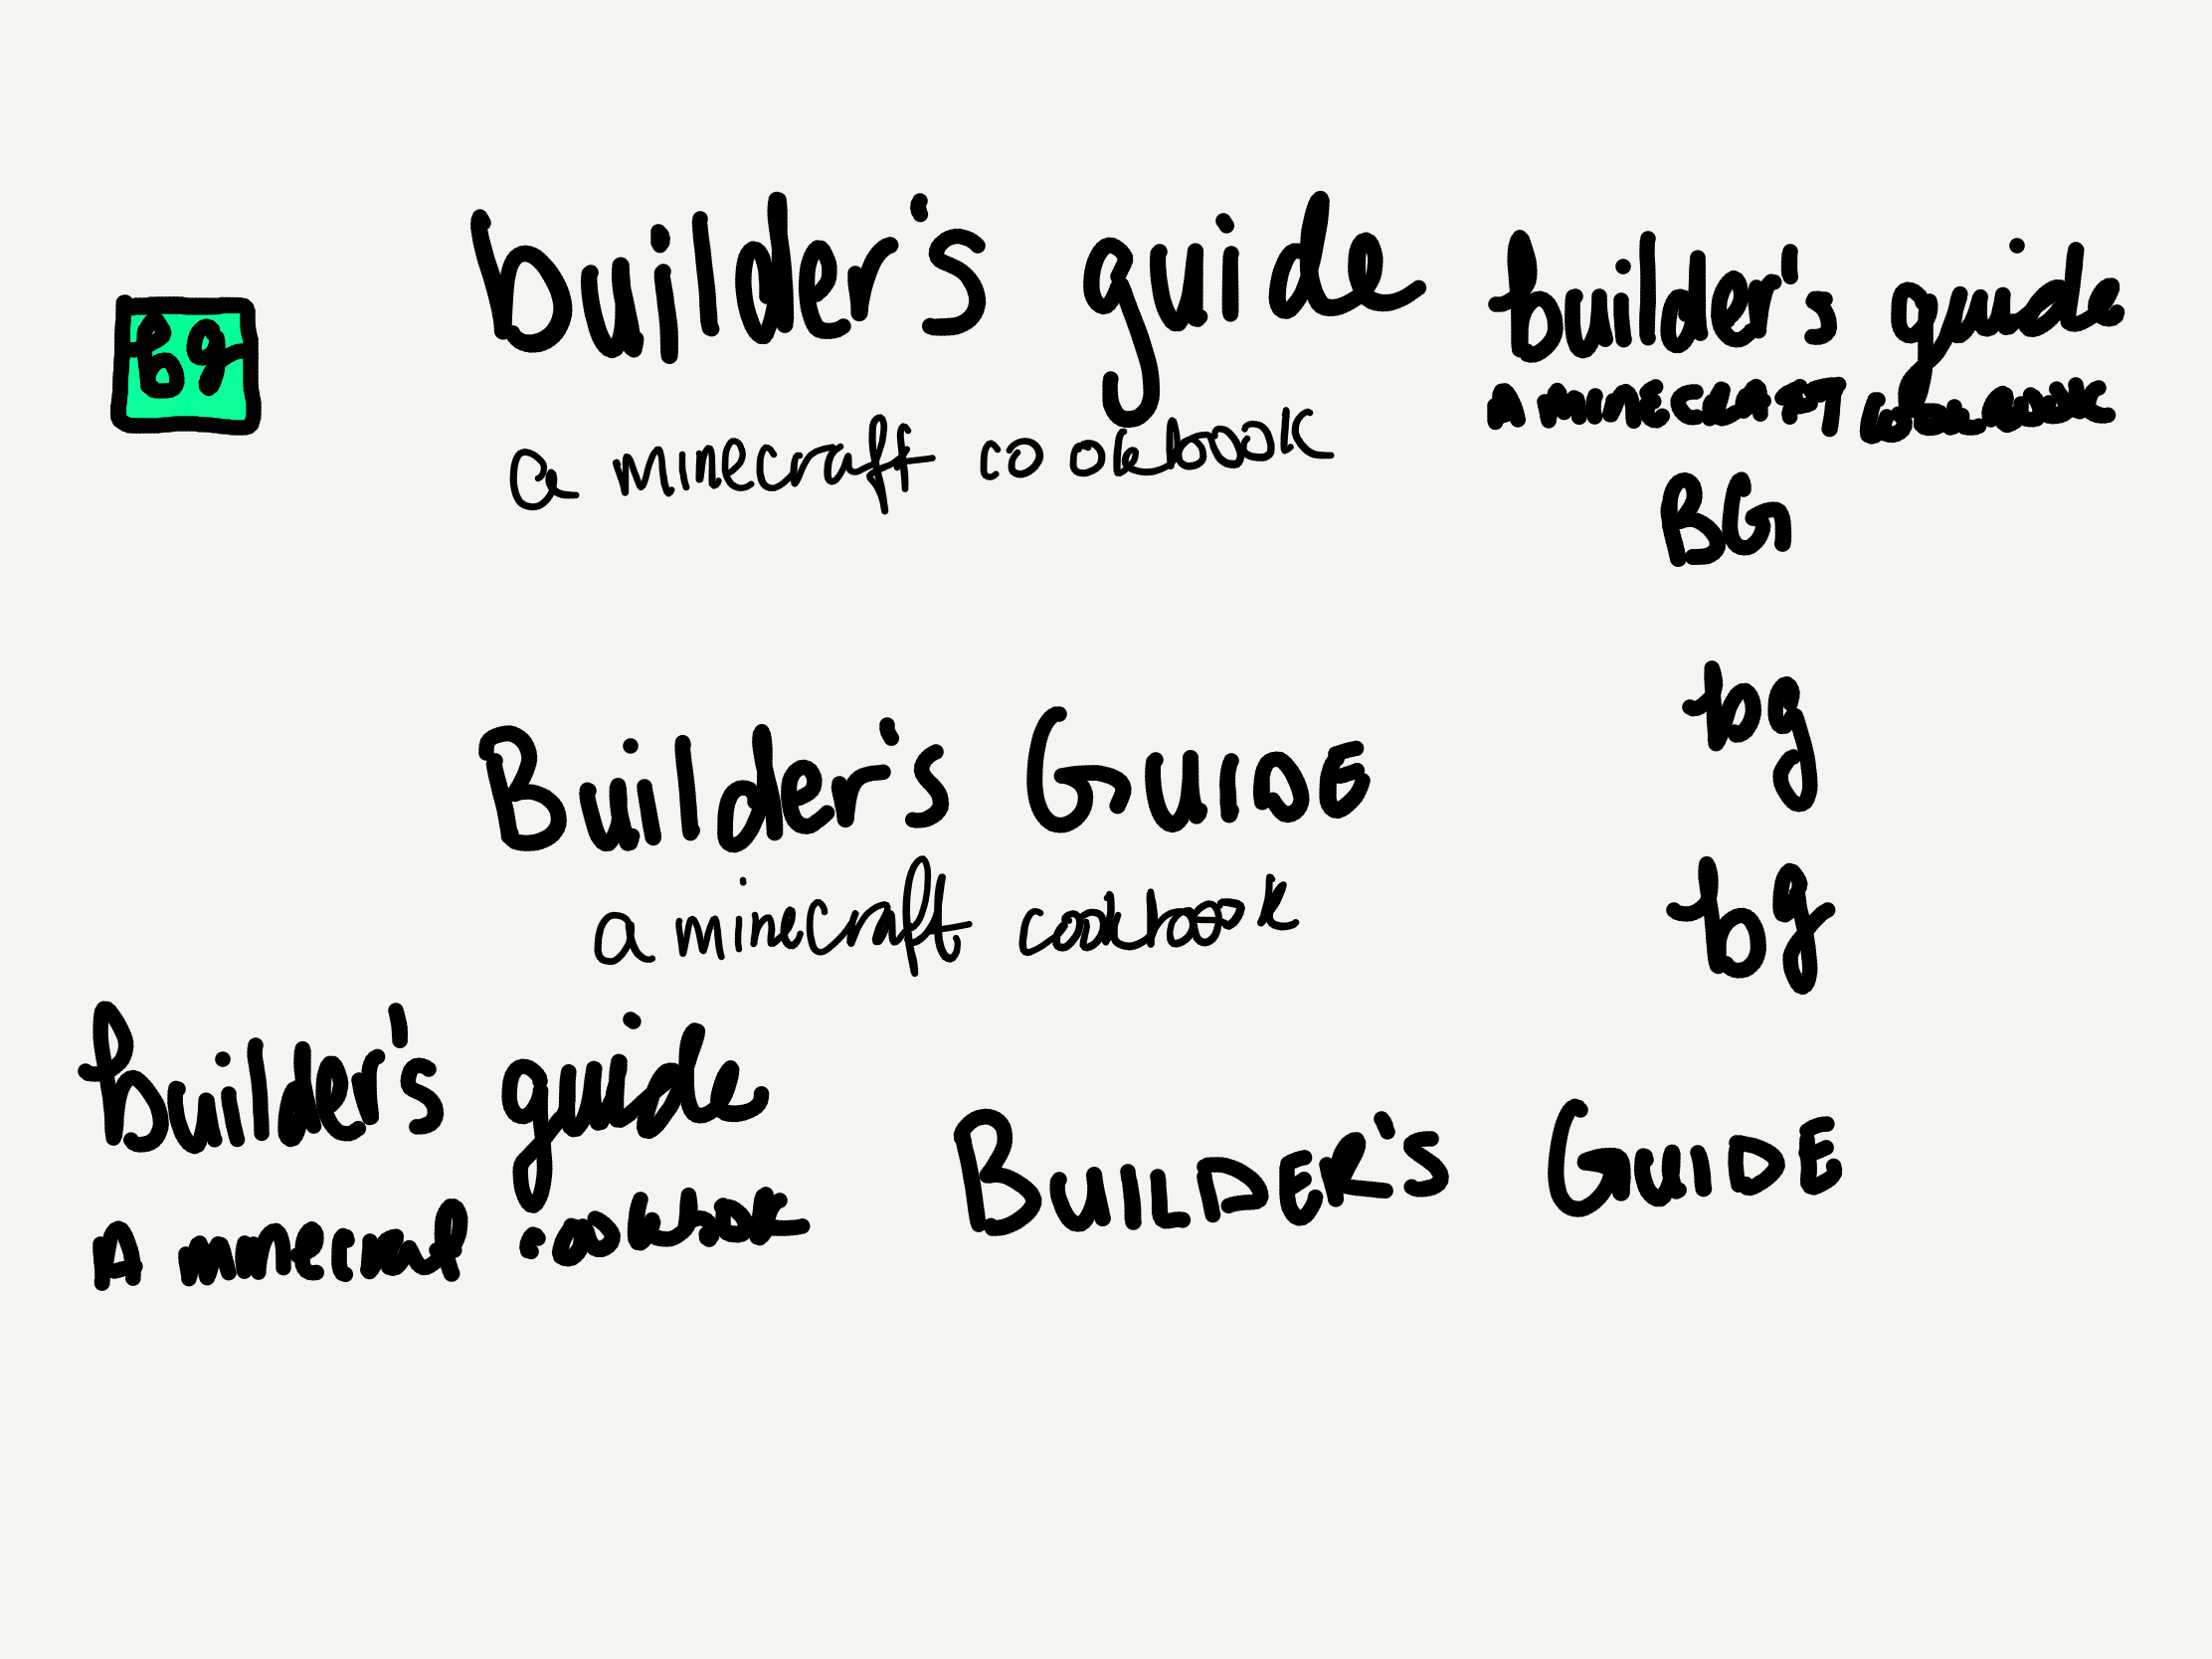 Bg
builder's guide
a minecraft cookbook
builder's guide
A MINECRAFT cookbook
BG
bg
Builder's GUIDE
a minecraft cookbook
bg
Builder's guide
A minecraf cookbook
BUILDER'S GUIDE